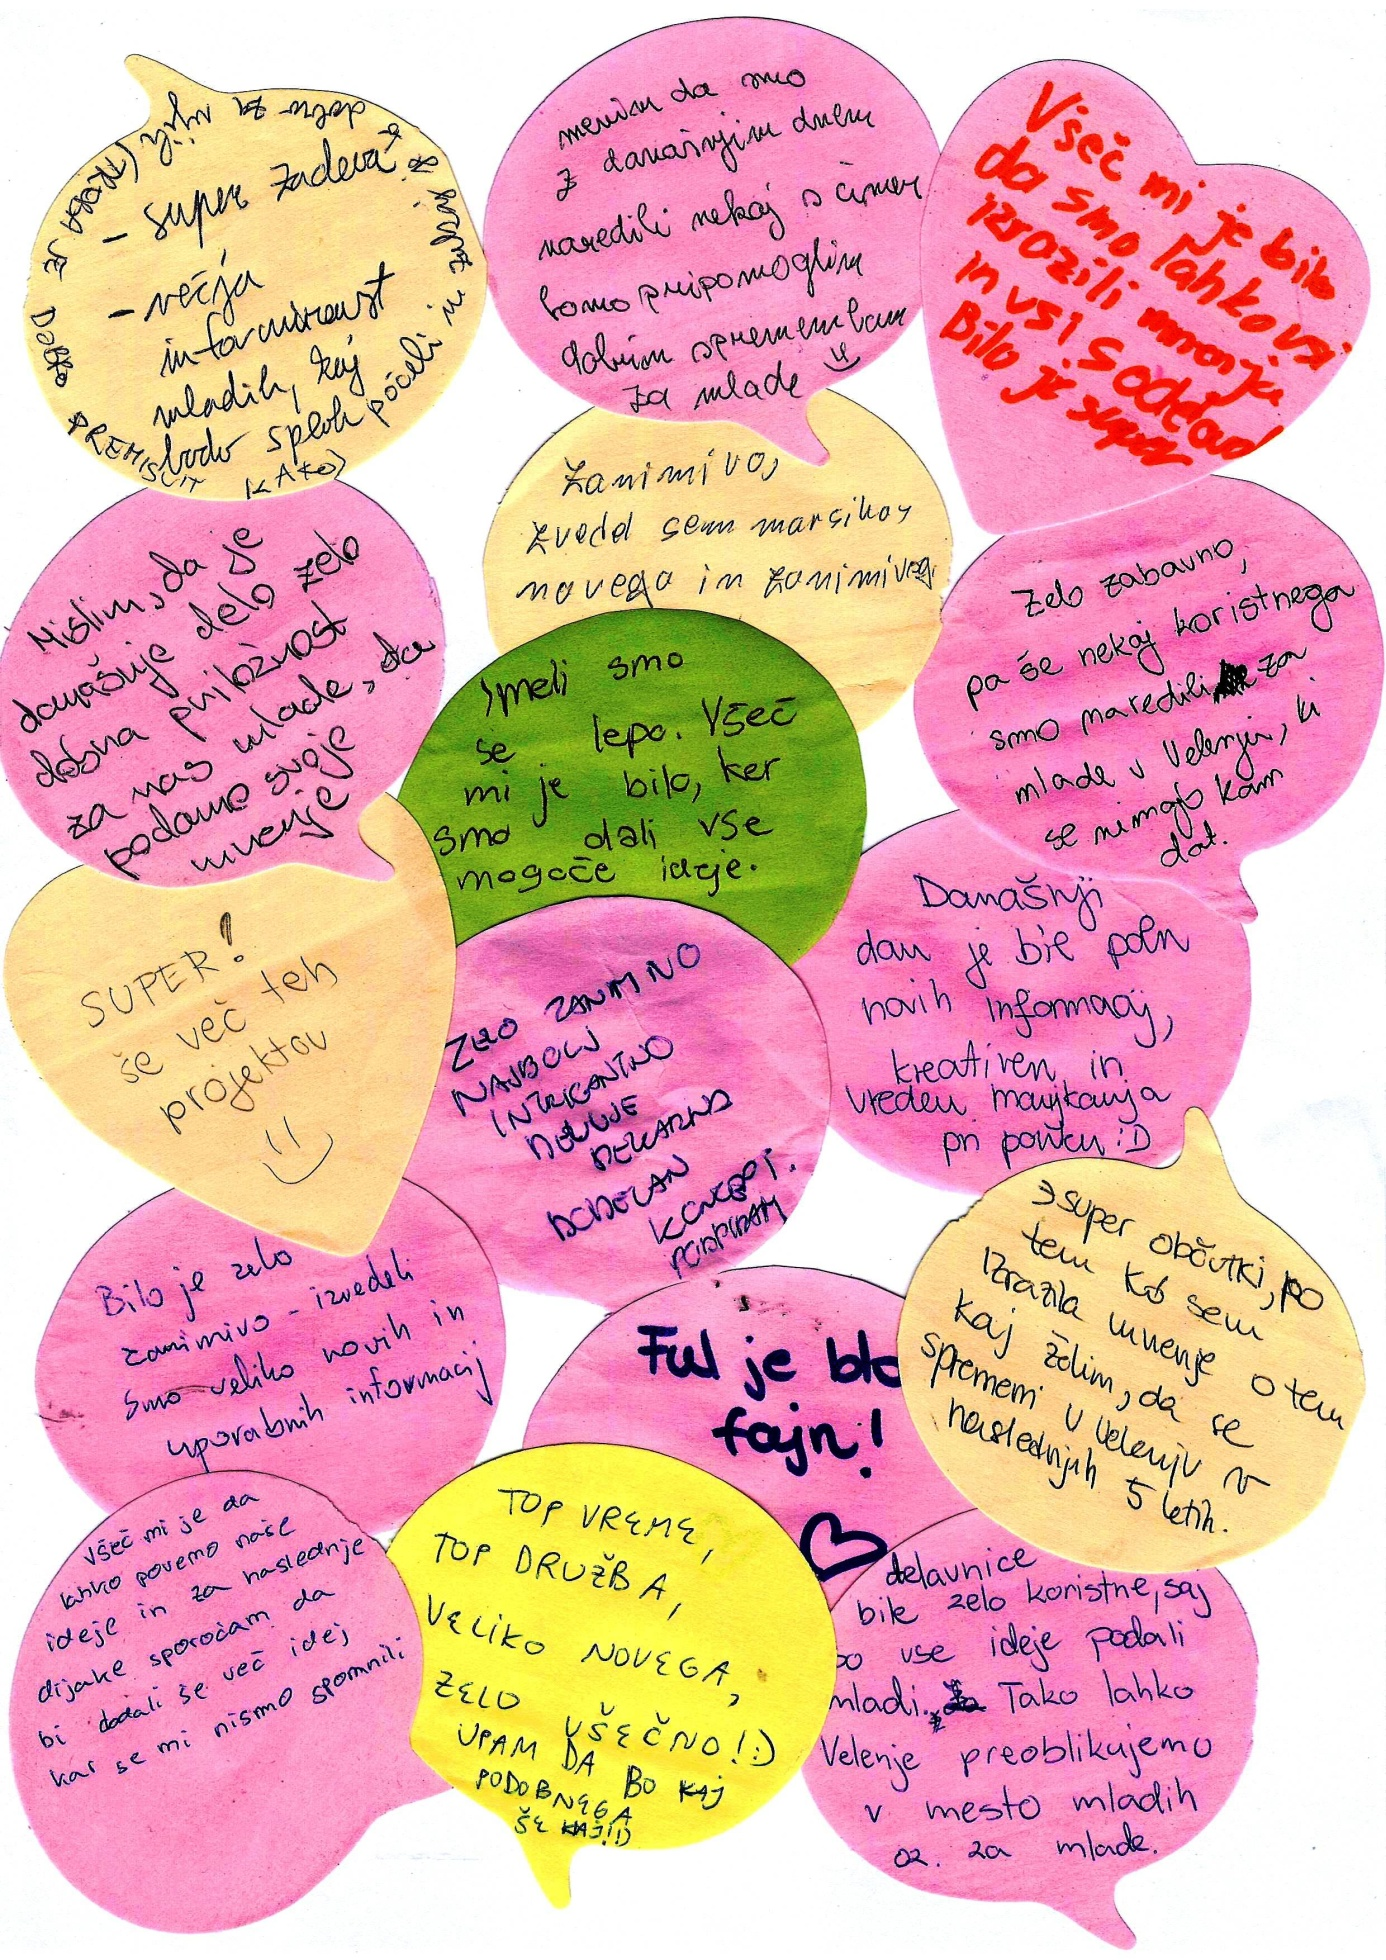 - super zadeva
- večja
informiranost
mladih, kaj
bodo sploh počeli in
menim da smo
z današnjim dnem
naredili nekaj s čimer
bomo pripomoglim
dobrim spremembam
za mlade
Všeč mi je bilo
da smo lahko vsi
izrazili mnenje
in vsi sodeloval
Bilo je super
Zanimivo,
zvedel sem marsikaj
novega in zanimiveg
Mislim, da je
današnje delo zelo
dobra priložnost
za nas mlade, da
podamo svoje
mnenje
Zelo zabavno,
pa še nekaj koristnega
smo naredili za
mlade v Velenju, ki
se nimajo kam
dat.
Imeli smo
se lepo. Všeč
mi je bilo, ker
smo dali vse
mogoče ideje.
SUPER!
še več teh
projektov
ZELO ZANIMIVO
NAJBOLJ
INTRIGANTNO
DELUJE
DEKARD
DODELAN
KONCEPT.
PODPIRAM
Današnji
dan je bil poln
novih informacij,
kreativen in
vreden manjkanja
pri pouku :D
Bilo je zelo
zanimivo - izvedeli
smo veliko novih in
uporabnih informacij
Ful je blo
fajn!
super občutki, po
tem ko sem
izrazila mnenje o tem
kaj želim, da se
spremeni v Velenju v
naslednjih 5 letih.
Všeč mi je da
lahko povemo naše
ideje in za naslednje
dijake sporočam da
bi dodali še več idej
kar se mi nismo spomnili
TOP VREME,
TOP DRUŽBA,
VELIKO NOVEGA,
ZELO VŠEČNO! :)
UPAM DA BO KAJ
PODOBNEGA
ŠE
delavnice
bile zelo koristne, saj
so vse ideje podali
mladi. Tako lahko
Velenje preoblikujemo
v mesto mladih
oz. za mlade.